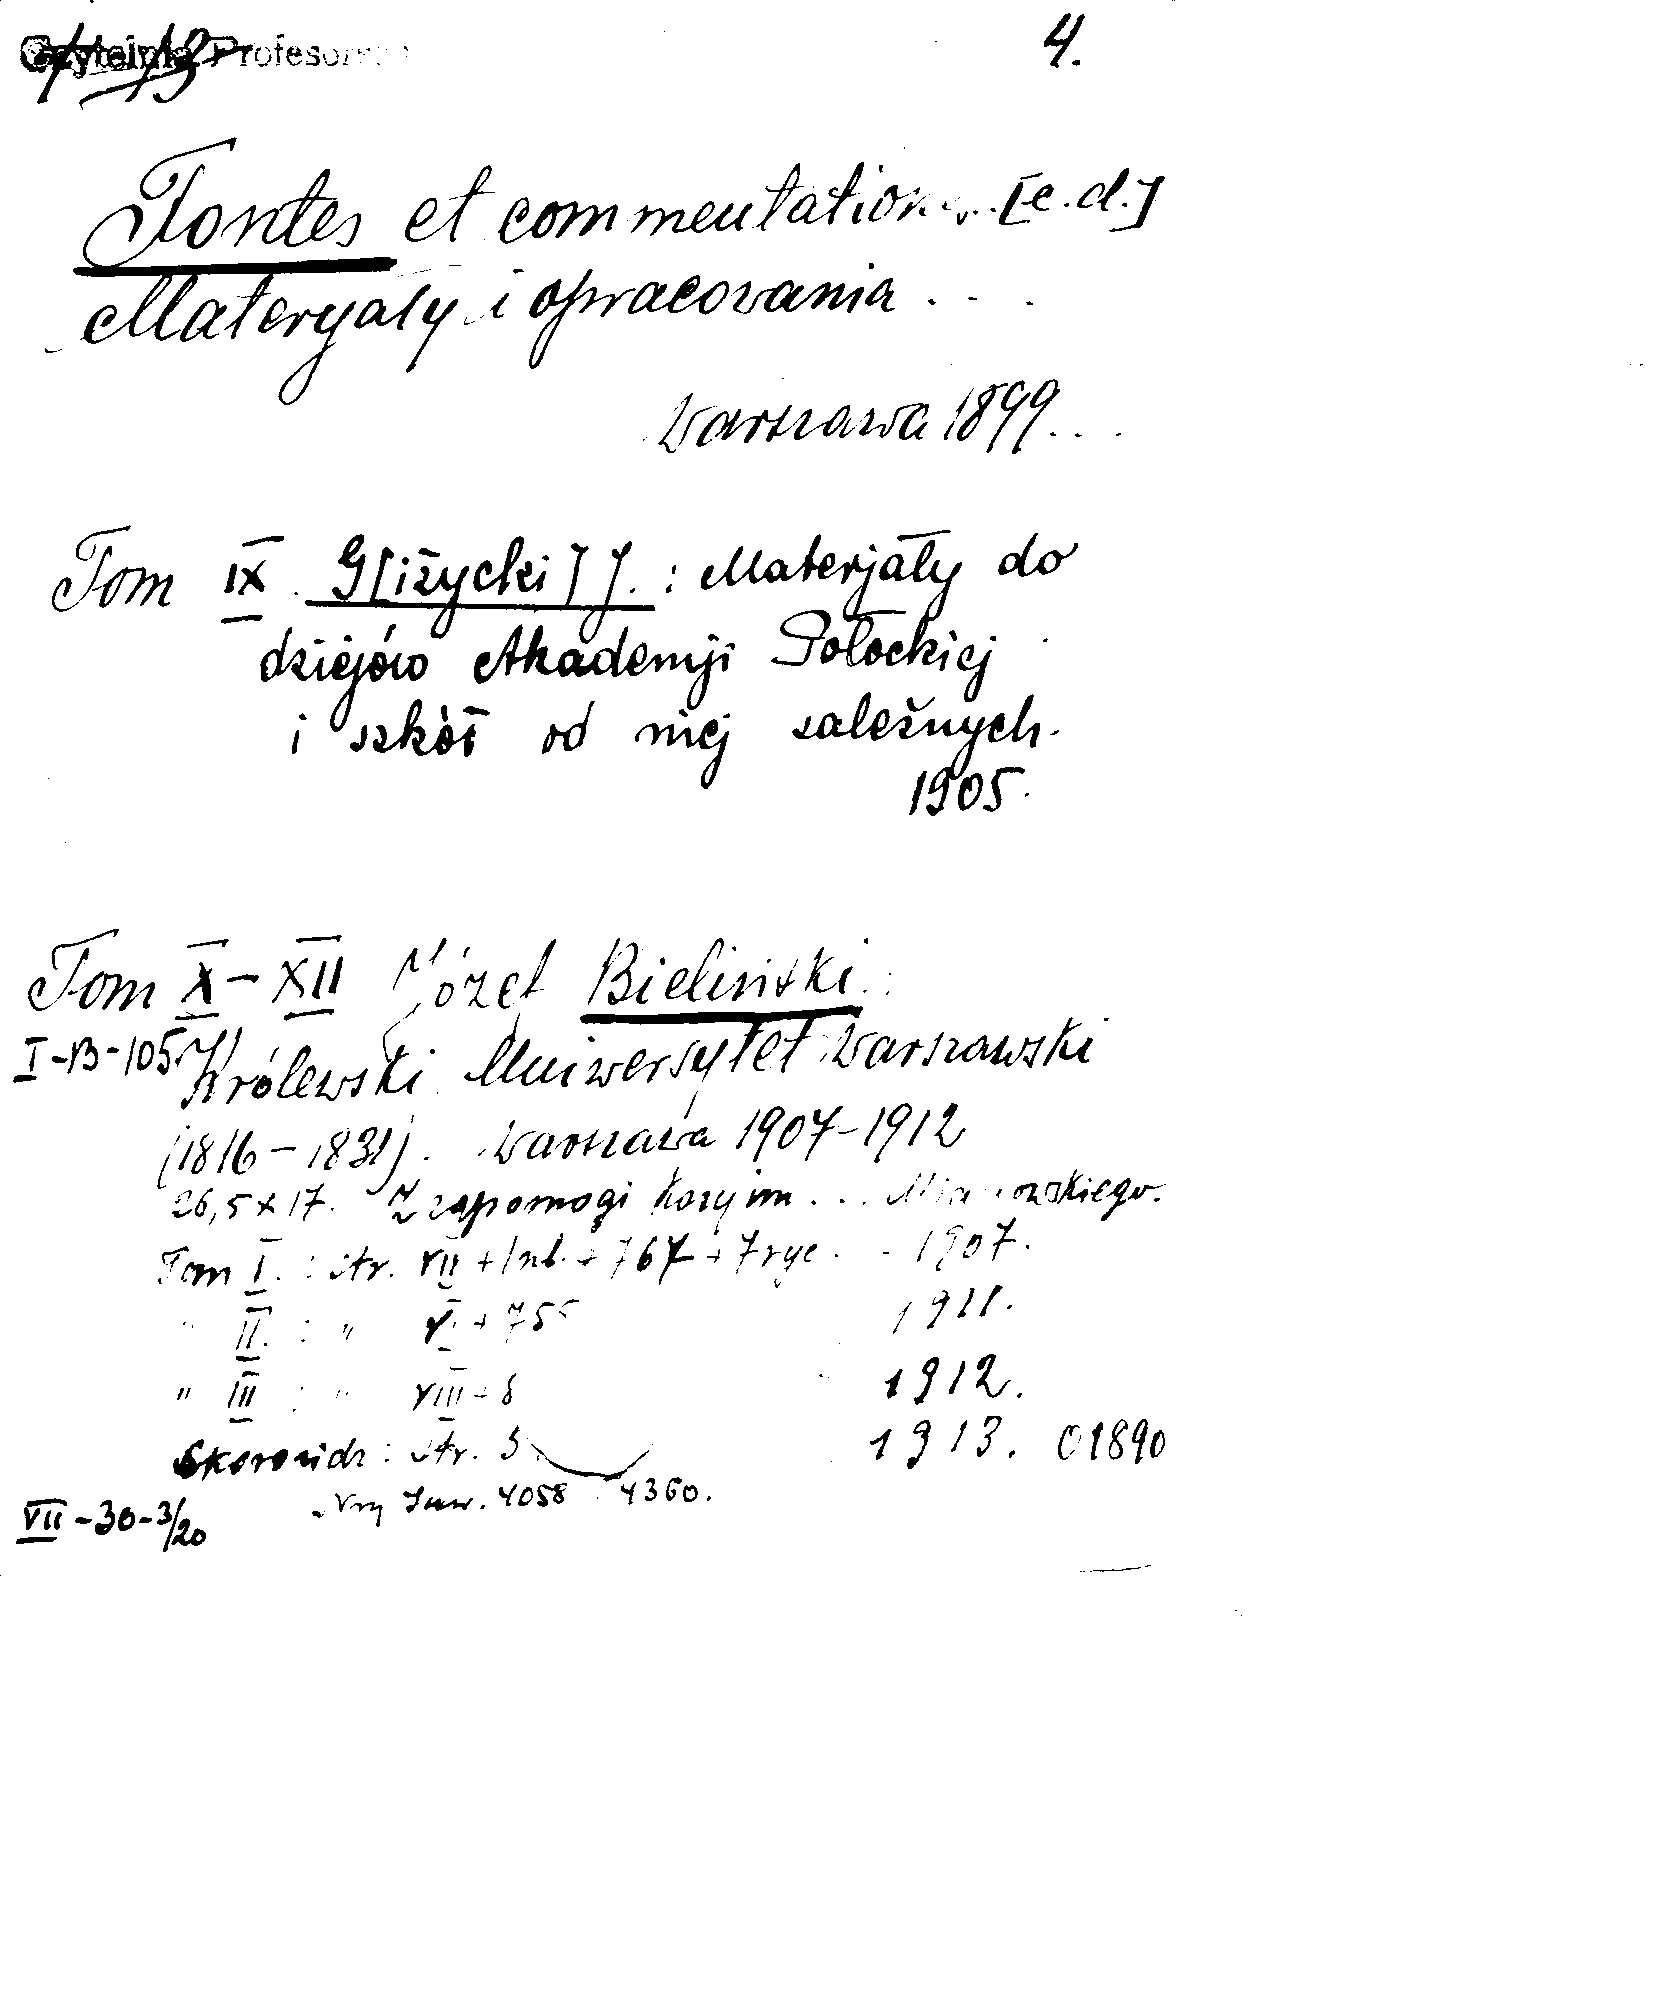 Czytelnia Profesor
4.
Fontes et commentation... [c.d.]
Materyały i opracowania . . .
Warszawa 1899...
Tom IX G[iżycki] J. : Materjały do
dziejów Akademji Połockiej
i szkół od niej zależnych.
1905.
Tom X-XII Józef Bieliński :
I-B-105
Królewski Uniwersytet Warszawski
(1816-1831). Warszawa 1907-1912
26,5 x 17. Z zapomogi Kasy im. . . Mianowskiego.
Tom I. : str. VII + 1nl. + 767 + 7 ryc. 1907.
" II. : " V + 755 1911.
" III : " VIII + 8 1912.
Skorowidz : str. 5 1913. 01890
Nry Inw. 4058 4360.
VII-30-3/20